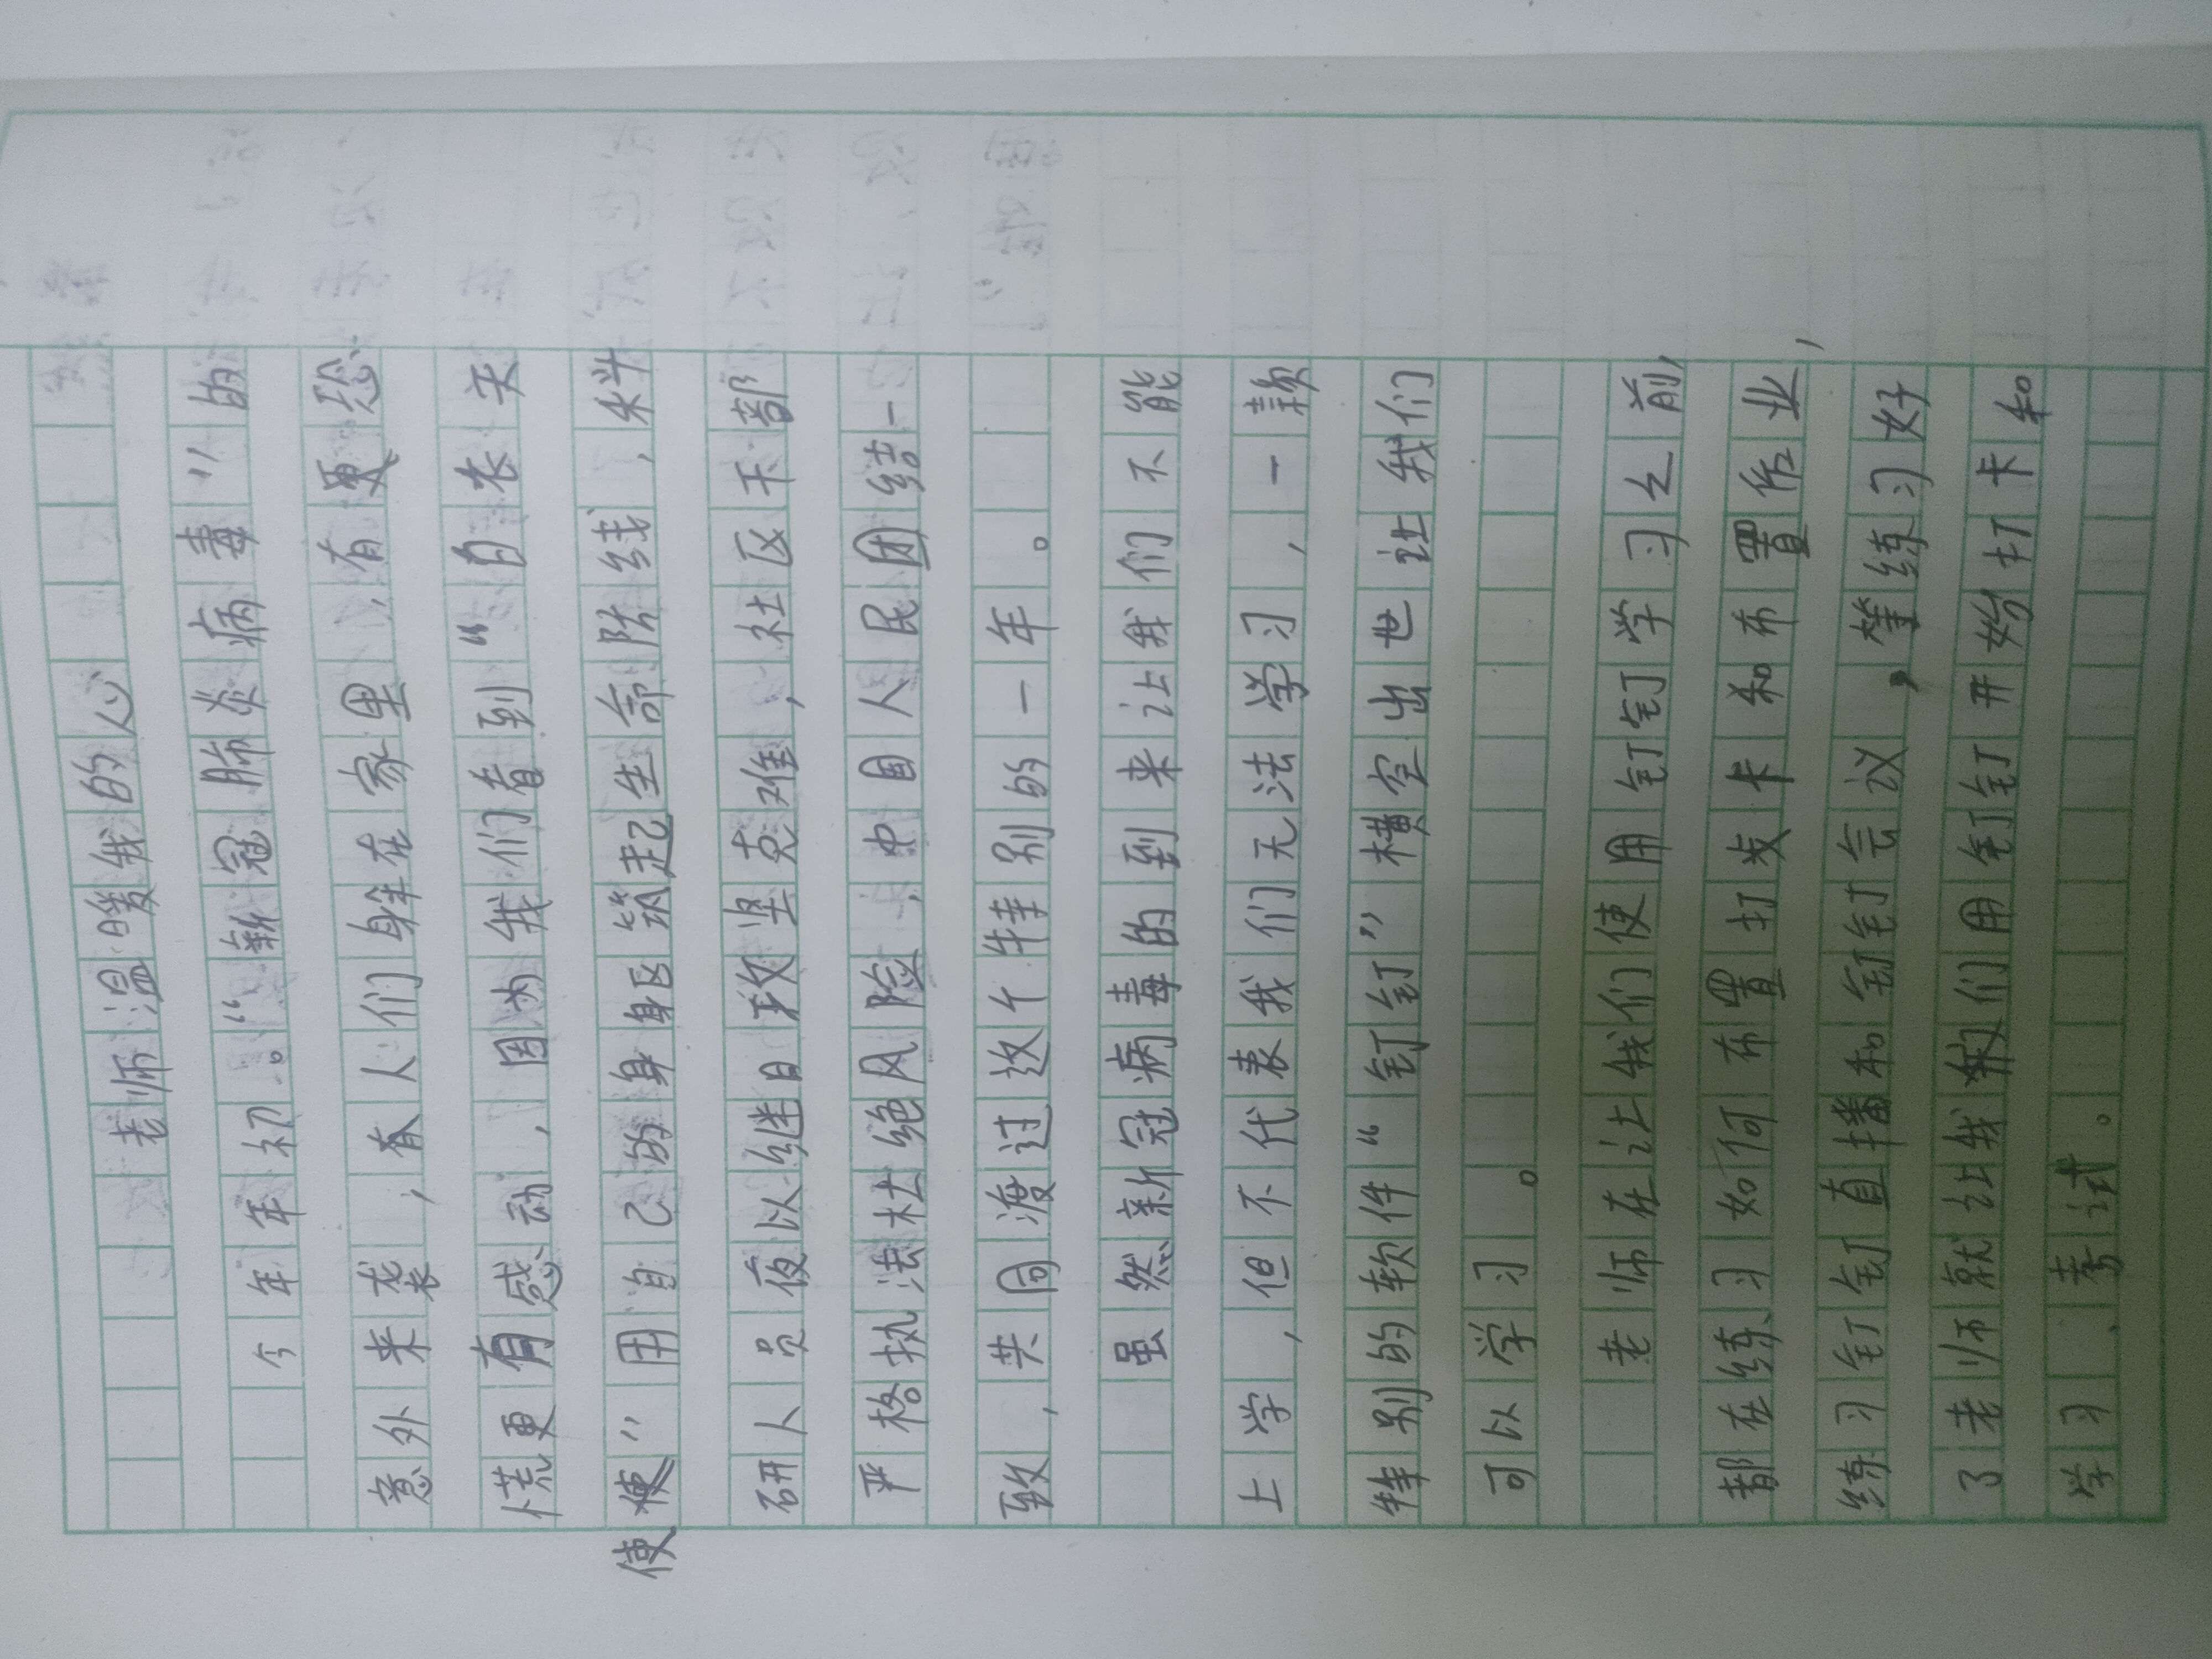 老师温暖我的心
今年年初。“新冠肺炎病毒”的
意外来袭，有人们身在家里，有更恐
慌更有感动，因为我们看到“白衣天
使”用自己的身躯筑起生命防线，科
研人员夜以继日攻坚克难，社区干部
严格执法杜绝风险，中国人民团结一
致，共同渡过这个特别的一年。
虽然新冠病毒的到来让我们不能
上学，但不代表我们无法学习，一款
特别的软件“钉钉”横空出世让我们
可以学习。
老师在让我们使用钉钉学习之前，
都在练习如何布置打发卡和布置作业，
练习钉钉直播和钉钉会议，等练习好
了老师就让我们用钉钉开始打卡和
学习、考试。